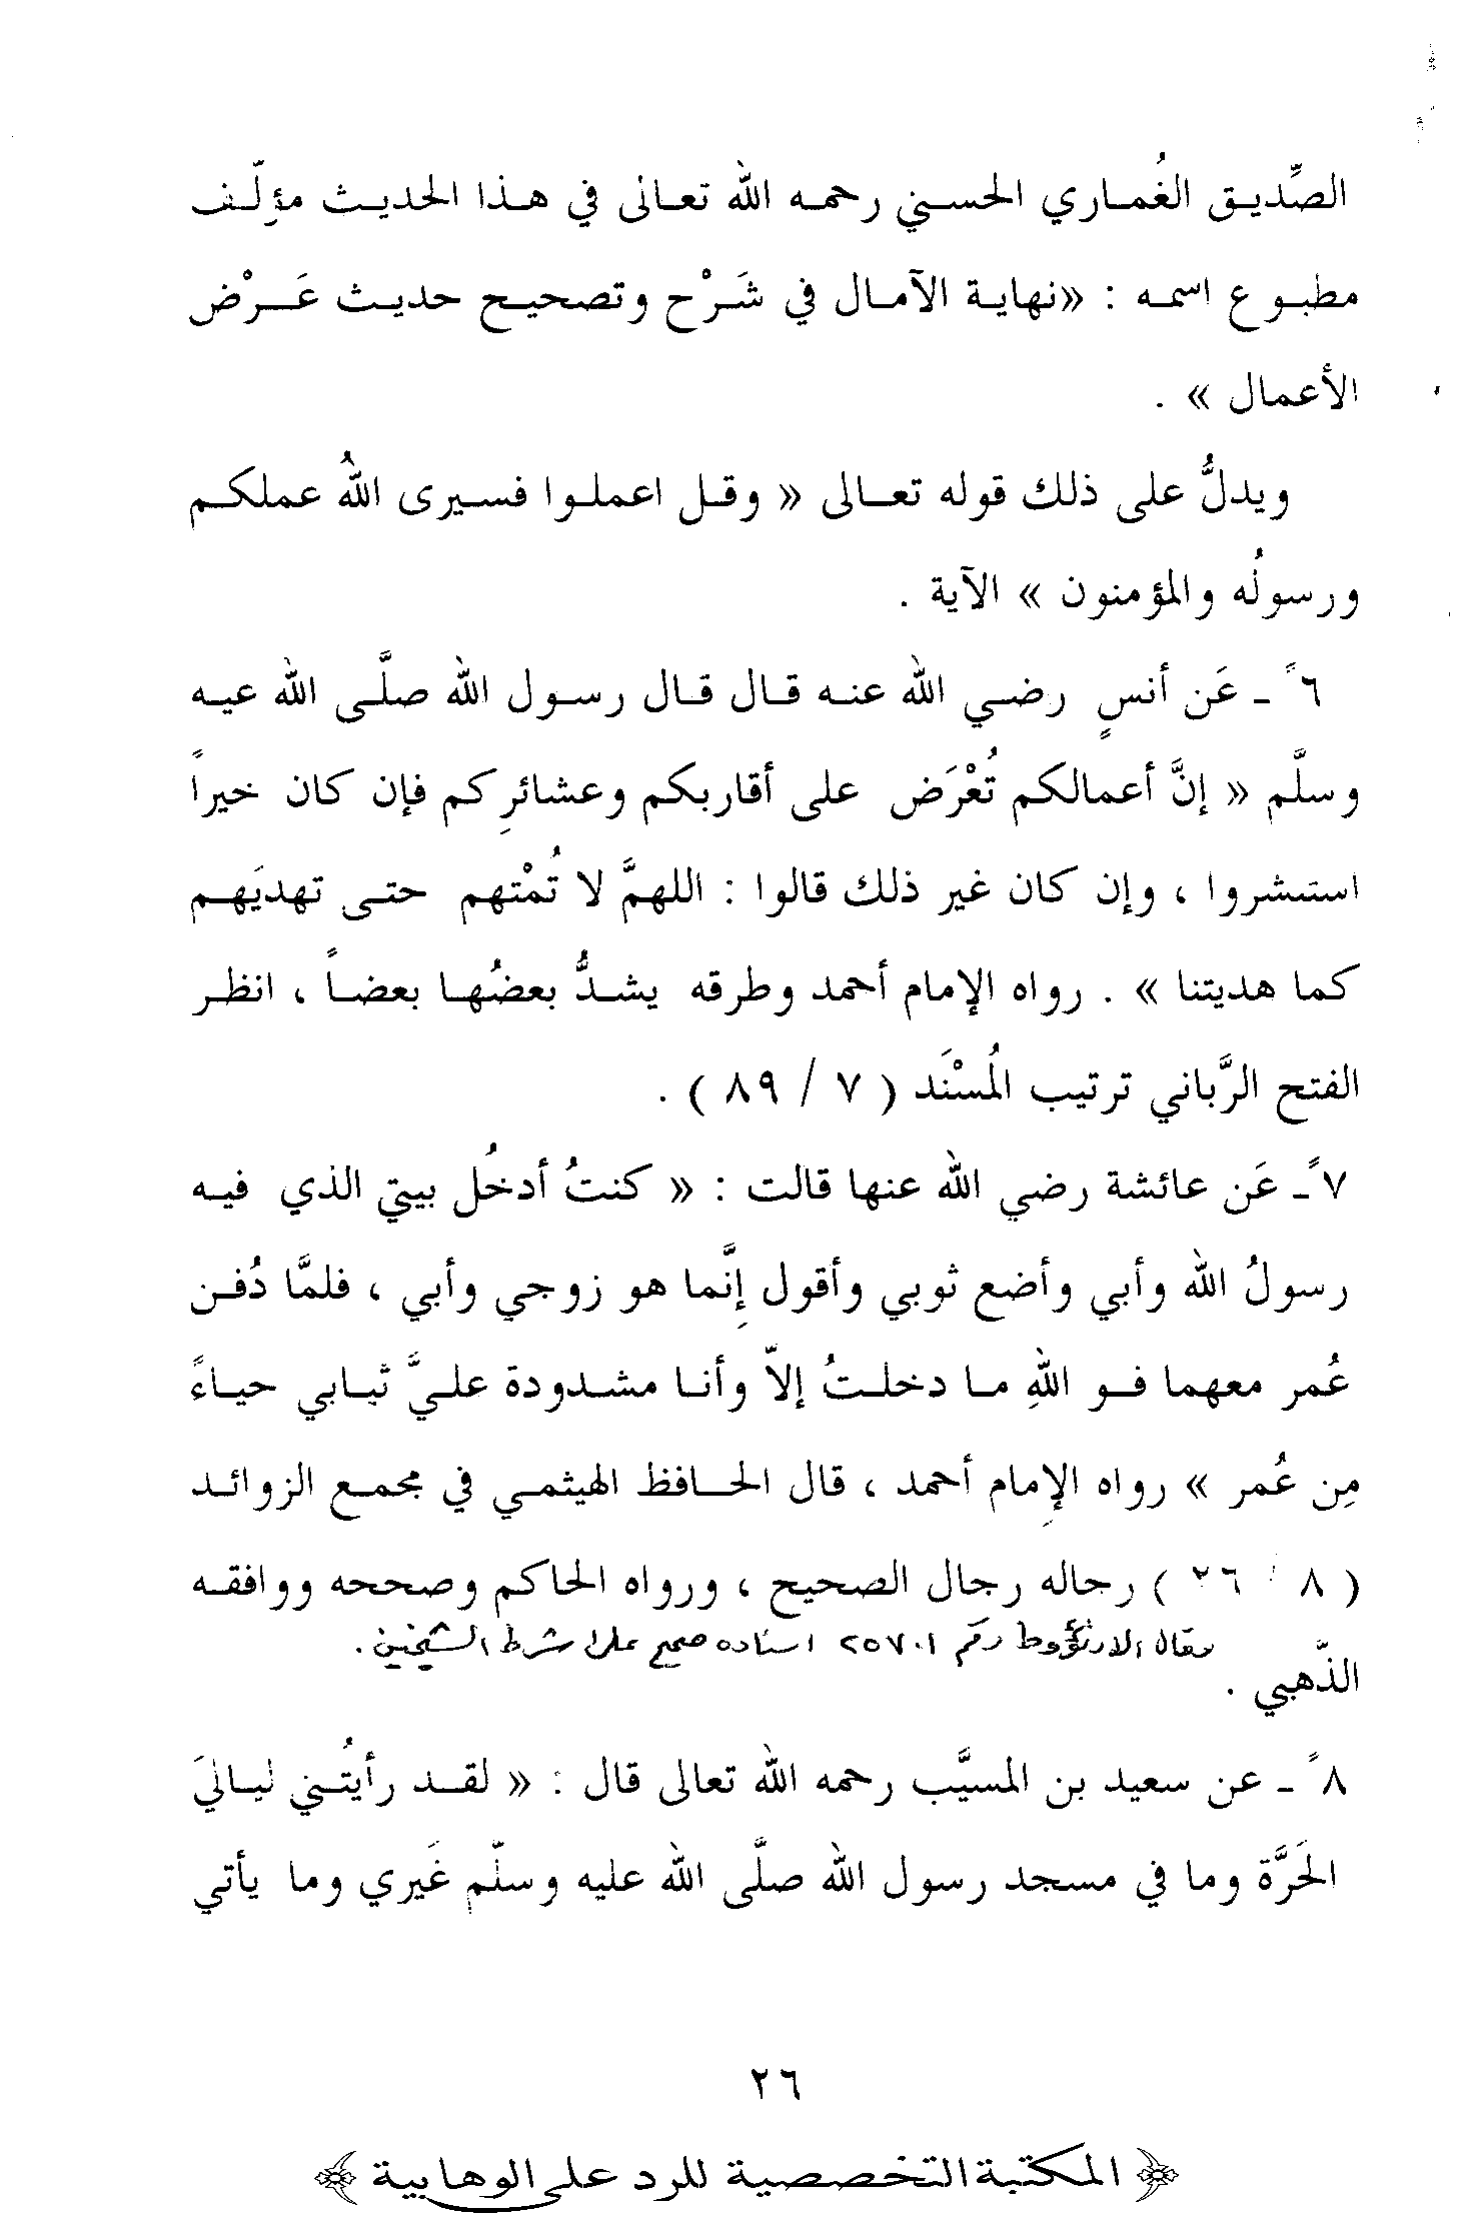 الصِّديق الغُماري الحسني رحمه الله تعالى في هذا الحديث مؤلِّف
مطبوع اسمه : «نهاية الآمال في شَرْح وتصحيح حديث عَرْض
الأعمال » .
ويدلُّ على ذلك قوله تعالى « وقل اعملوا فسيرى اللهُ عملكم
ورسولُه والمؤمنون » الآية .
٦ً ـ عَن أنسٍ رضي الله عنه قال قال رسول الله صلَّى الله عيه
وسلَّم « إنَّ أعمالكم تُعْرَض على أقاربكم وعشائرِكم فإن كان خيراً
استبشروا ، وإن كان غير ذلك قالوا : اللهمَّ لا تُمْتهم حتى تهديَهم
كما هديتنا » . رواه الإمام أحمد وطرقه يشدُّ بعضُها بعضاً ، انظر
الفتح الرَّباني ترتيب المُسْنَد ( ٧ / ٨٩ ) .
٧ً ـ عَن عائشة رضي الله عنها قالت : « كنتُ أدخُل بيتي الذي فيه
رسولُ الله وأبي وأضع ثوبي وأقول إِنَّما هو زوجي وأبي ، فلمَّا دُفن
عُمر معهما فو اللهِ ما دخلتُ إلاّ وأنا مشدودة عليَّ ثيابي حياءً
مِن عُمر » رواه الإِمام أحمد ، قال الحافظ الهيثمي في مجمع الزوائد
( ٨ / ٢٦ ) رجاله رجال الصحيح ، ورواه الحاكم وصححه ووافقه
وقال الارنؤوط رقم ٢٥٧٠١ اسناده صحيح على شرط الشيخين .
الذَّهبي .
٨ً ـ عن سعيد بن المسيَّب رحمه الله تعالى قال : « لقد رأيتُني لياليَ
الحَرَّة وما في مسجد رسول الله صلَّى الله عليه وسلّم غَيري وما يأتي
٢٦
المكتبة التخصصية للرد على الوهابية